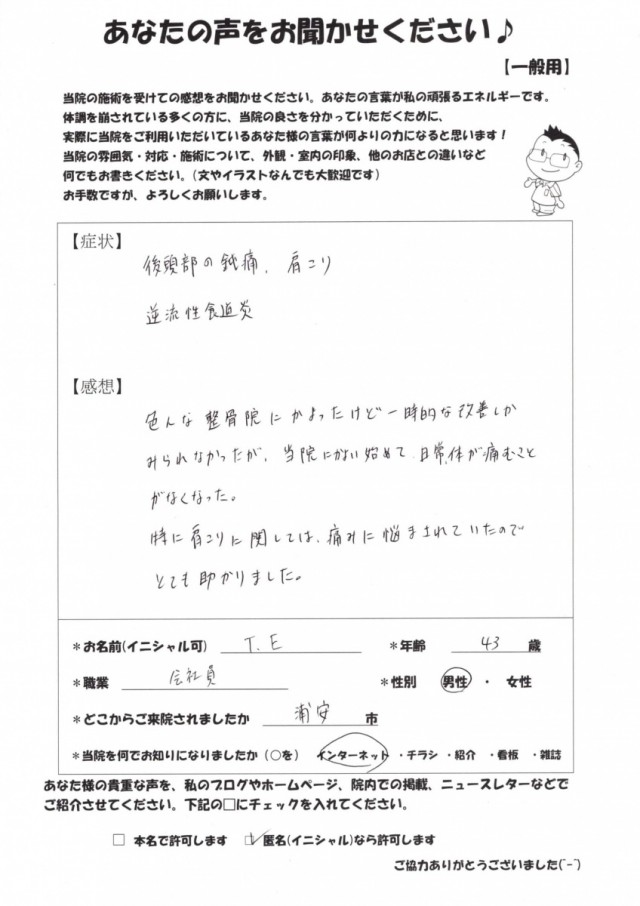 あなたの声をお聞かせください♪
【一般用】
当院の施術を受けての感想をお聞かせください。あなたの言葉が私の頑張るエネルギーです。
体調を崩されている多くの方に、当院の良さを分かっていただくために、
実際に当院をご利用いただいているあなた様の言葉が何よりの力になると思います!
当院の雰囲気・対応・施術について、外観・室内の印象、他のお店との違いなど
何でもお書きください。(文やイラストなんでも大歓迎です)
お手数ですが、よろしくお願いします。
【症状】
後頭部の鈍痛、肩こり
逆流性食道炎
【感想】
色んな整骨院にかよったけど一時的な改善しか
みられなかったが、当院にかよい始めて、日常、体が痛むこと
がなくなった。
特に肩こりに関しては、痛みに悩まされていたので
とても助かりました。
*お名前(イニシャル可) T.E *年齢 43 歳
*職業 会社員 *性別 男性 ・ 女性
*どこからご来院されましたか 浦安 市
*当院を何でお知りになりましたか(○を) インターネット ・チラシ ・紹介 ・看板 ・雑誌
あなた様の貴重な声を、私のブログやホームページ、院内での掲載、ニュースレターなどで
ご紹介させてください。下記の□にチェックを入れてください。
□ 本名で許可します ☑ 匿名(イニシャル)なら許可します
ご協力ありがとうございました(^-^)